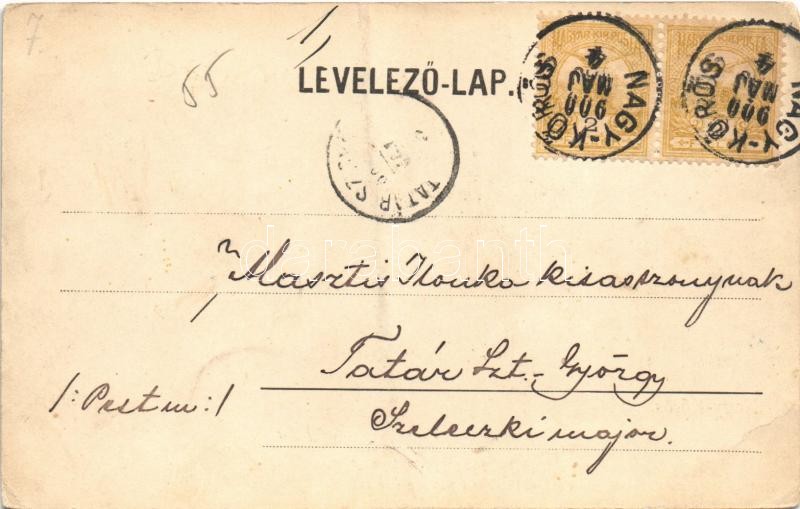 7.
55
LEVELEZŐ-LAP.
NAGY-KŐRÖS
900
MAJ
4
NAGY-KŐRÖS
900
MAJ
4
2
TATÁR SZ
darabanth
Ilonka kisasszonynak
Tatár Szt.-György
/: Pest m :/
Szeleczki major.